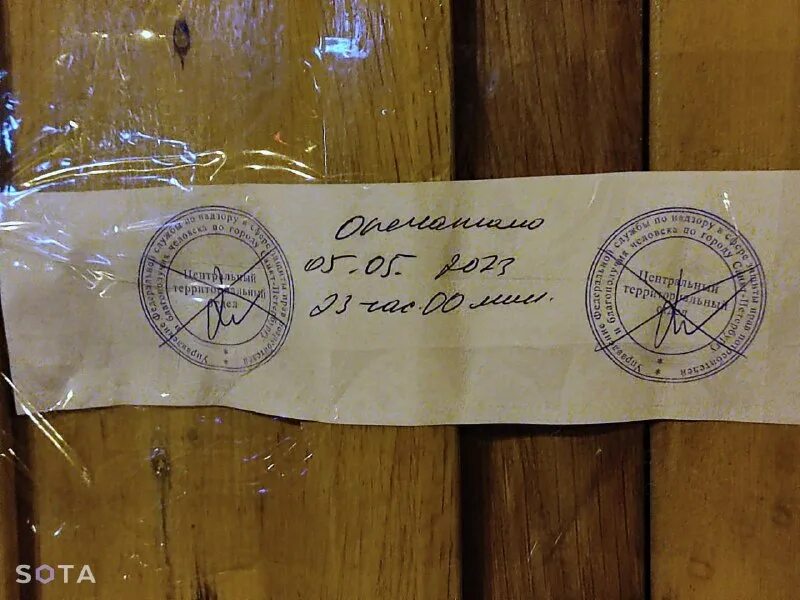 Опечатано
05.05. 2023
23 час. 00 мин.
Управление Федеральной службы по надзору в сфере защиты прав потребителей
и благополучия человека по городу Санкт-Петербургу
Центральный
территориальный
отдел
Управление Федеральной службы по надзору в сфере защиты прав потребителей
и благополучия человека по городу Санкт-Петербургу
Центральный
территориальный
отдел
SOTA